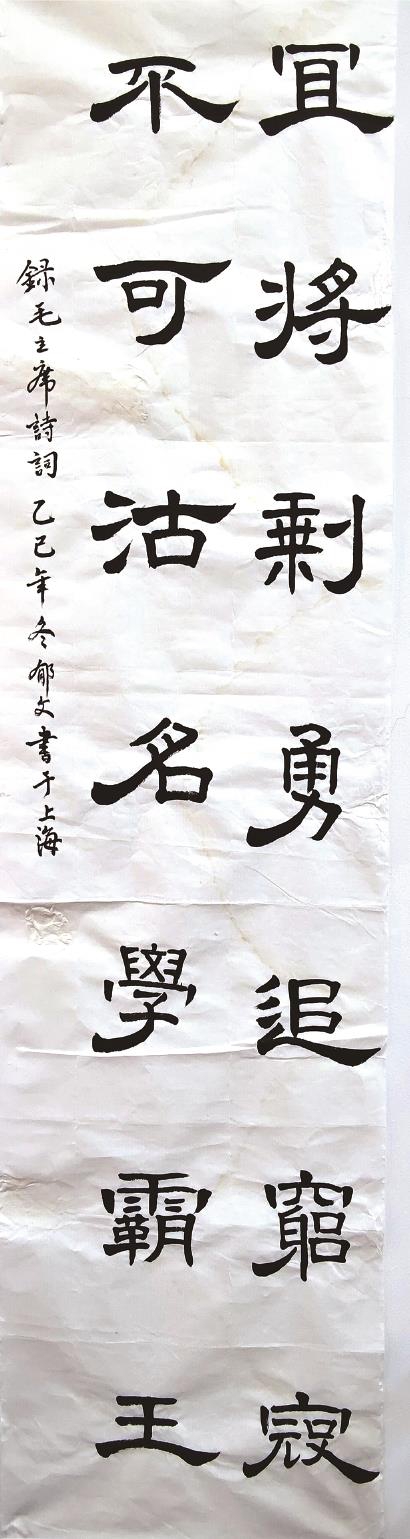 宜将剩勇追窮寇
不可沽名學霸王
録毛主席詩詞乙巳年冬郁文書于上海